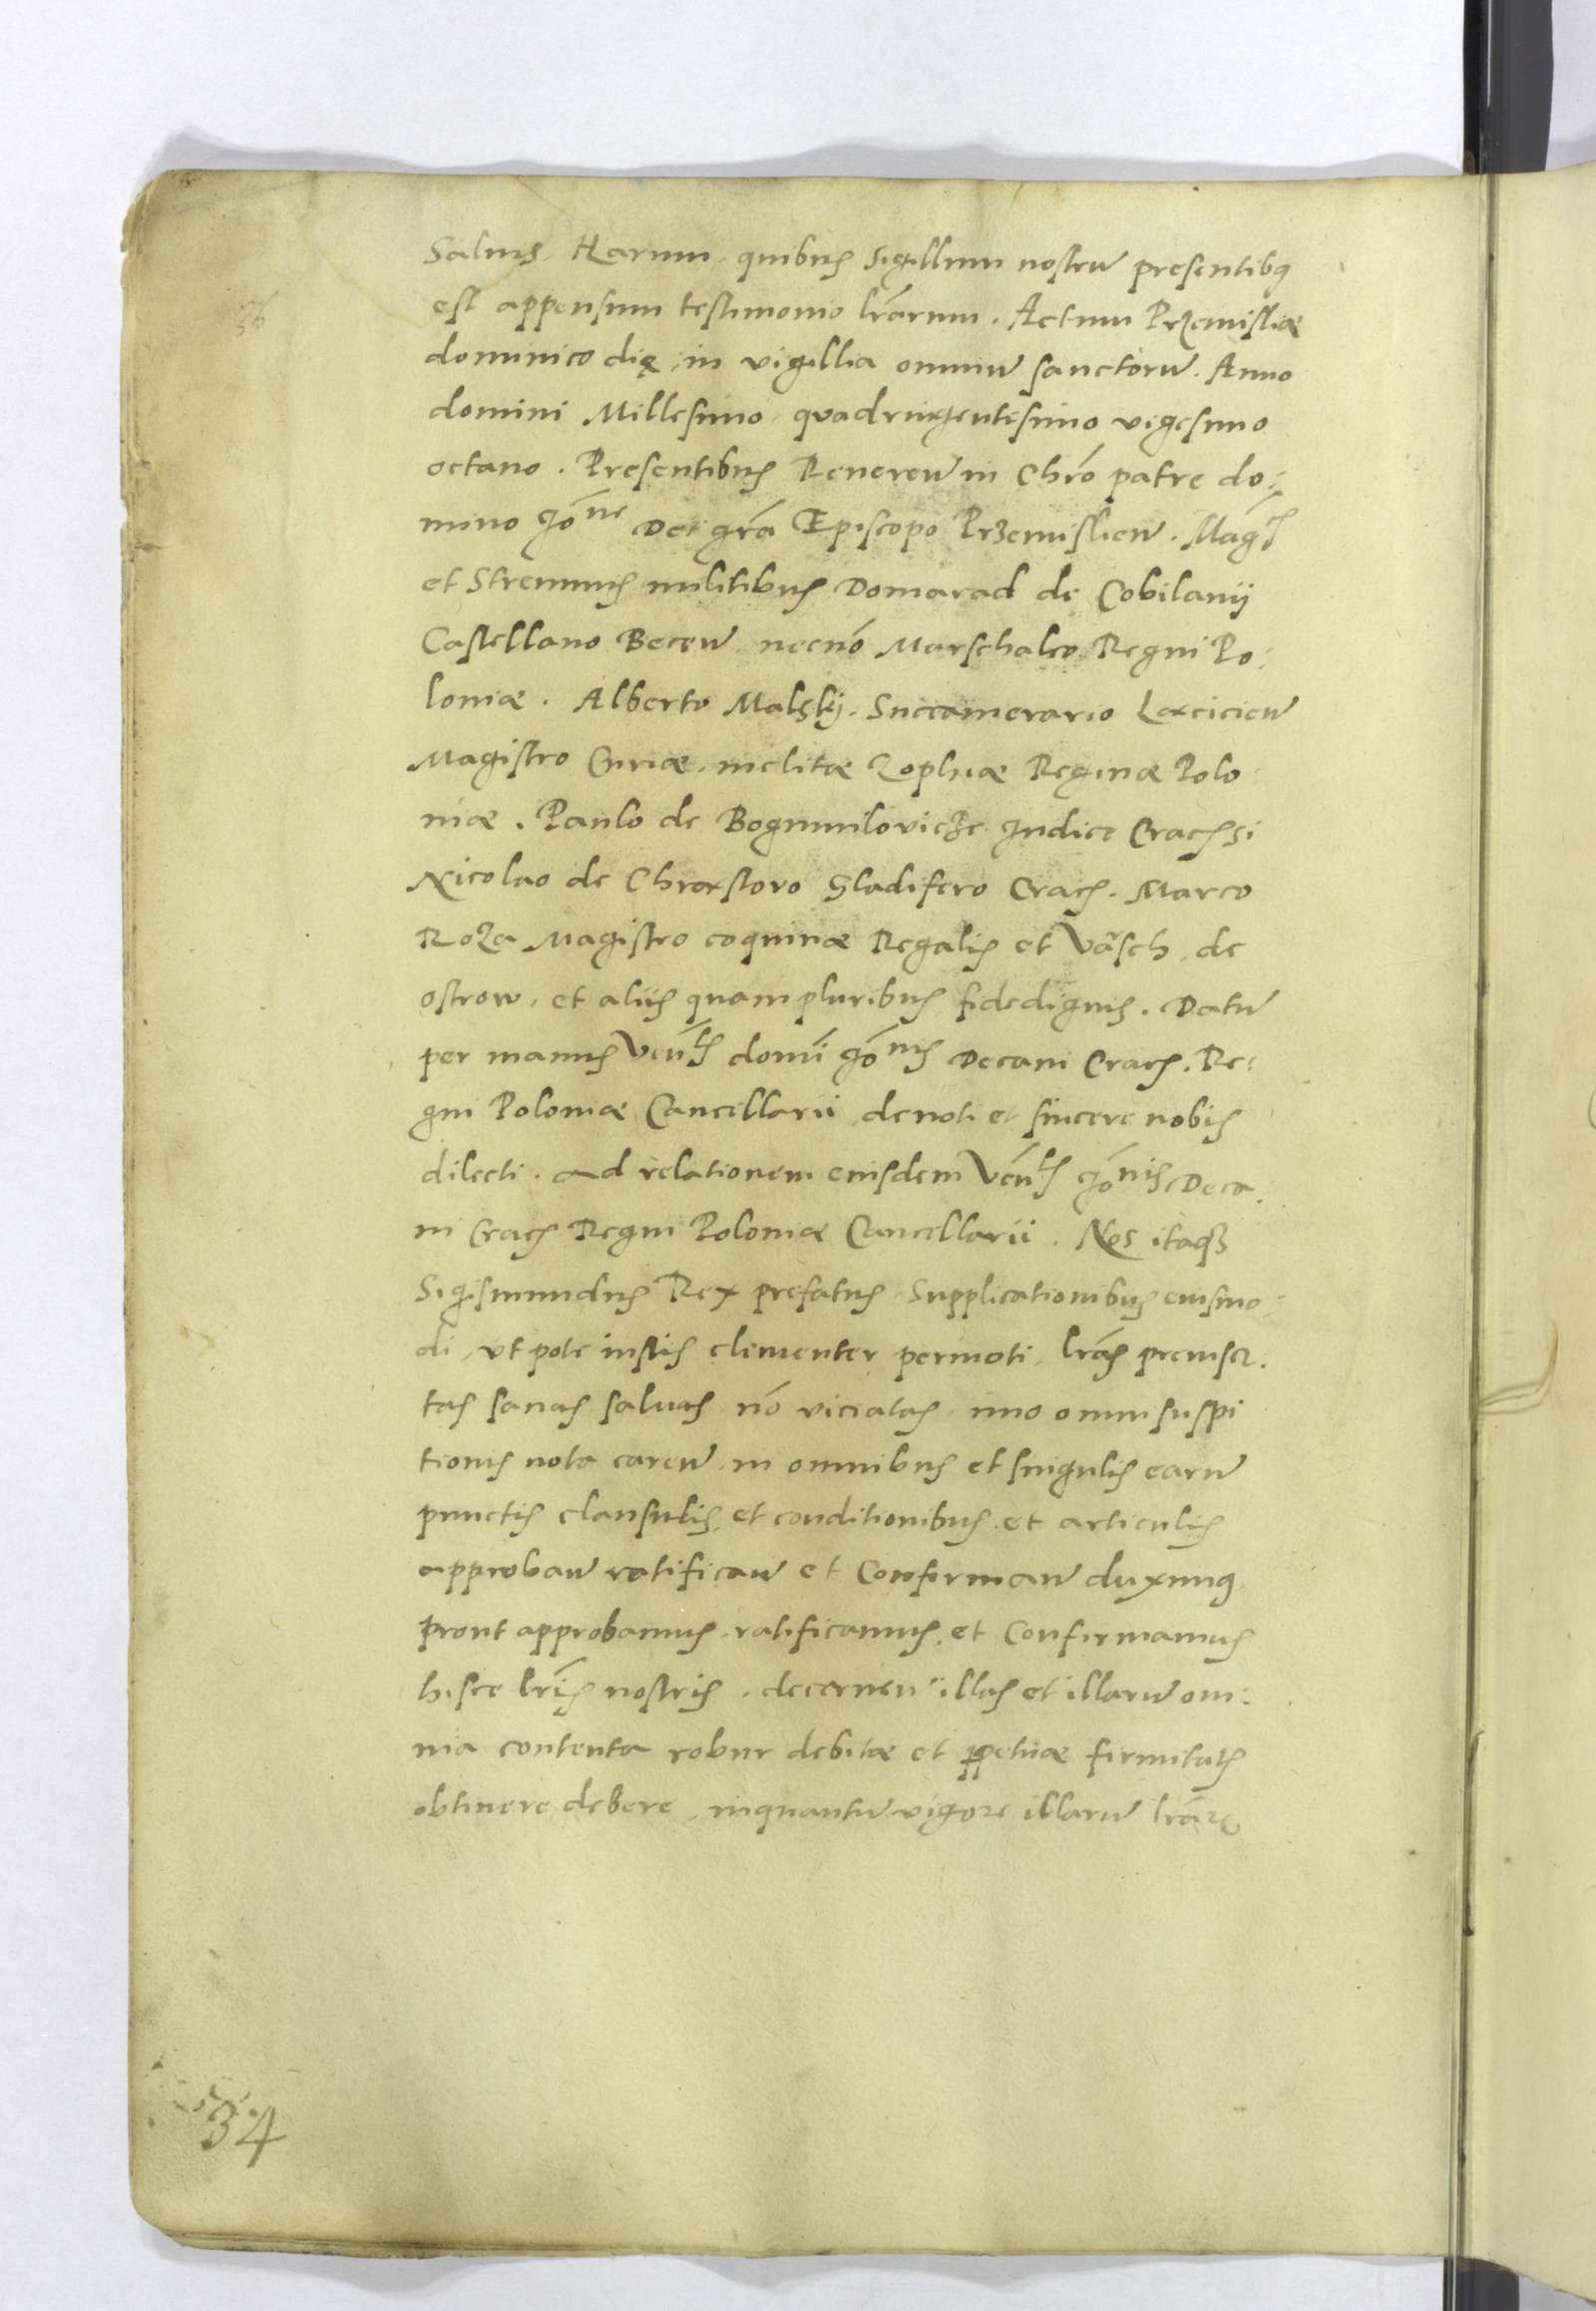 Saluis. Harum, quibus Sigillum nostrũ presentibq
est appensum testimonio lr̃arum. Actum Przemisliæ
36
dominico die, in vigillia omniũ sanctorũ. Anno
domini Millesimo, quadringentesimo vigesimo
octauo. Presentibus Reuereñ in Chr̃o patre do:
mino Joñe Dei gr̃a Episcopo Przemislieñ. Mag̃cis
et Strenuus militibus Domarad de Cobilanij
Castellano Beceñ necnõ Marschalco Regni Po:
loniæ. Alberto Malskij. Succamerario Lancicieñ
Magistro Curiæ, inclitæ Zophiæ Reginæ Polo
niæ. Paulo de Bogumilovicze Judice Cracẽsi
Nicolao de Chrostovo Gladifero Cracẽ. Marco
Roza Magistro coquinæ Regalis et Vãsch, de
ostrow, et aliis quampluribus fidedignis. Datũ
per manus Veñlis domñi Joñis Decani Cracẽ. Re:
gni Poloniæ Cancellarii, deuoti et sincere nobis
dilecti. Ad relationem eiusdem Veñlis Joñis Deca:
ni Cracẽ Regni Poloniæ Cancellarii. Nos itaq3
Sigismundus Rex prefatus, Supplicationibus eiusmo:
di, vt pote iustis clementer permoti, lr̃as preinser.
tas sanas saluas, nõ viciatas, imo omni suspi
tionis nota careñ, in omnibus et singulis earũ
punctis clausulis, et conditionibus, et articulis
approbañ ratificañ et Confirmañ duximq
prout approbamus, ratificamus, et Confirmamus
hisce lr̃is nostris, decerneñ illas et illarũ om:
nia contenta robur debitæ et ꝑpetuæ firmitatis
obtinere debere, inquantũ vigore illarũ lr̃arꝫ
34